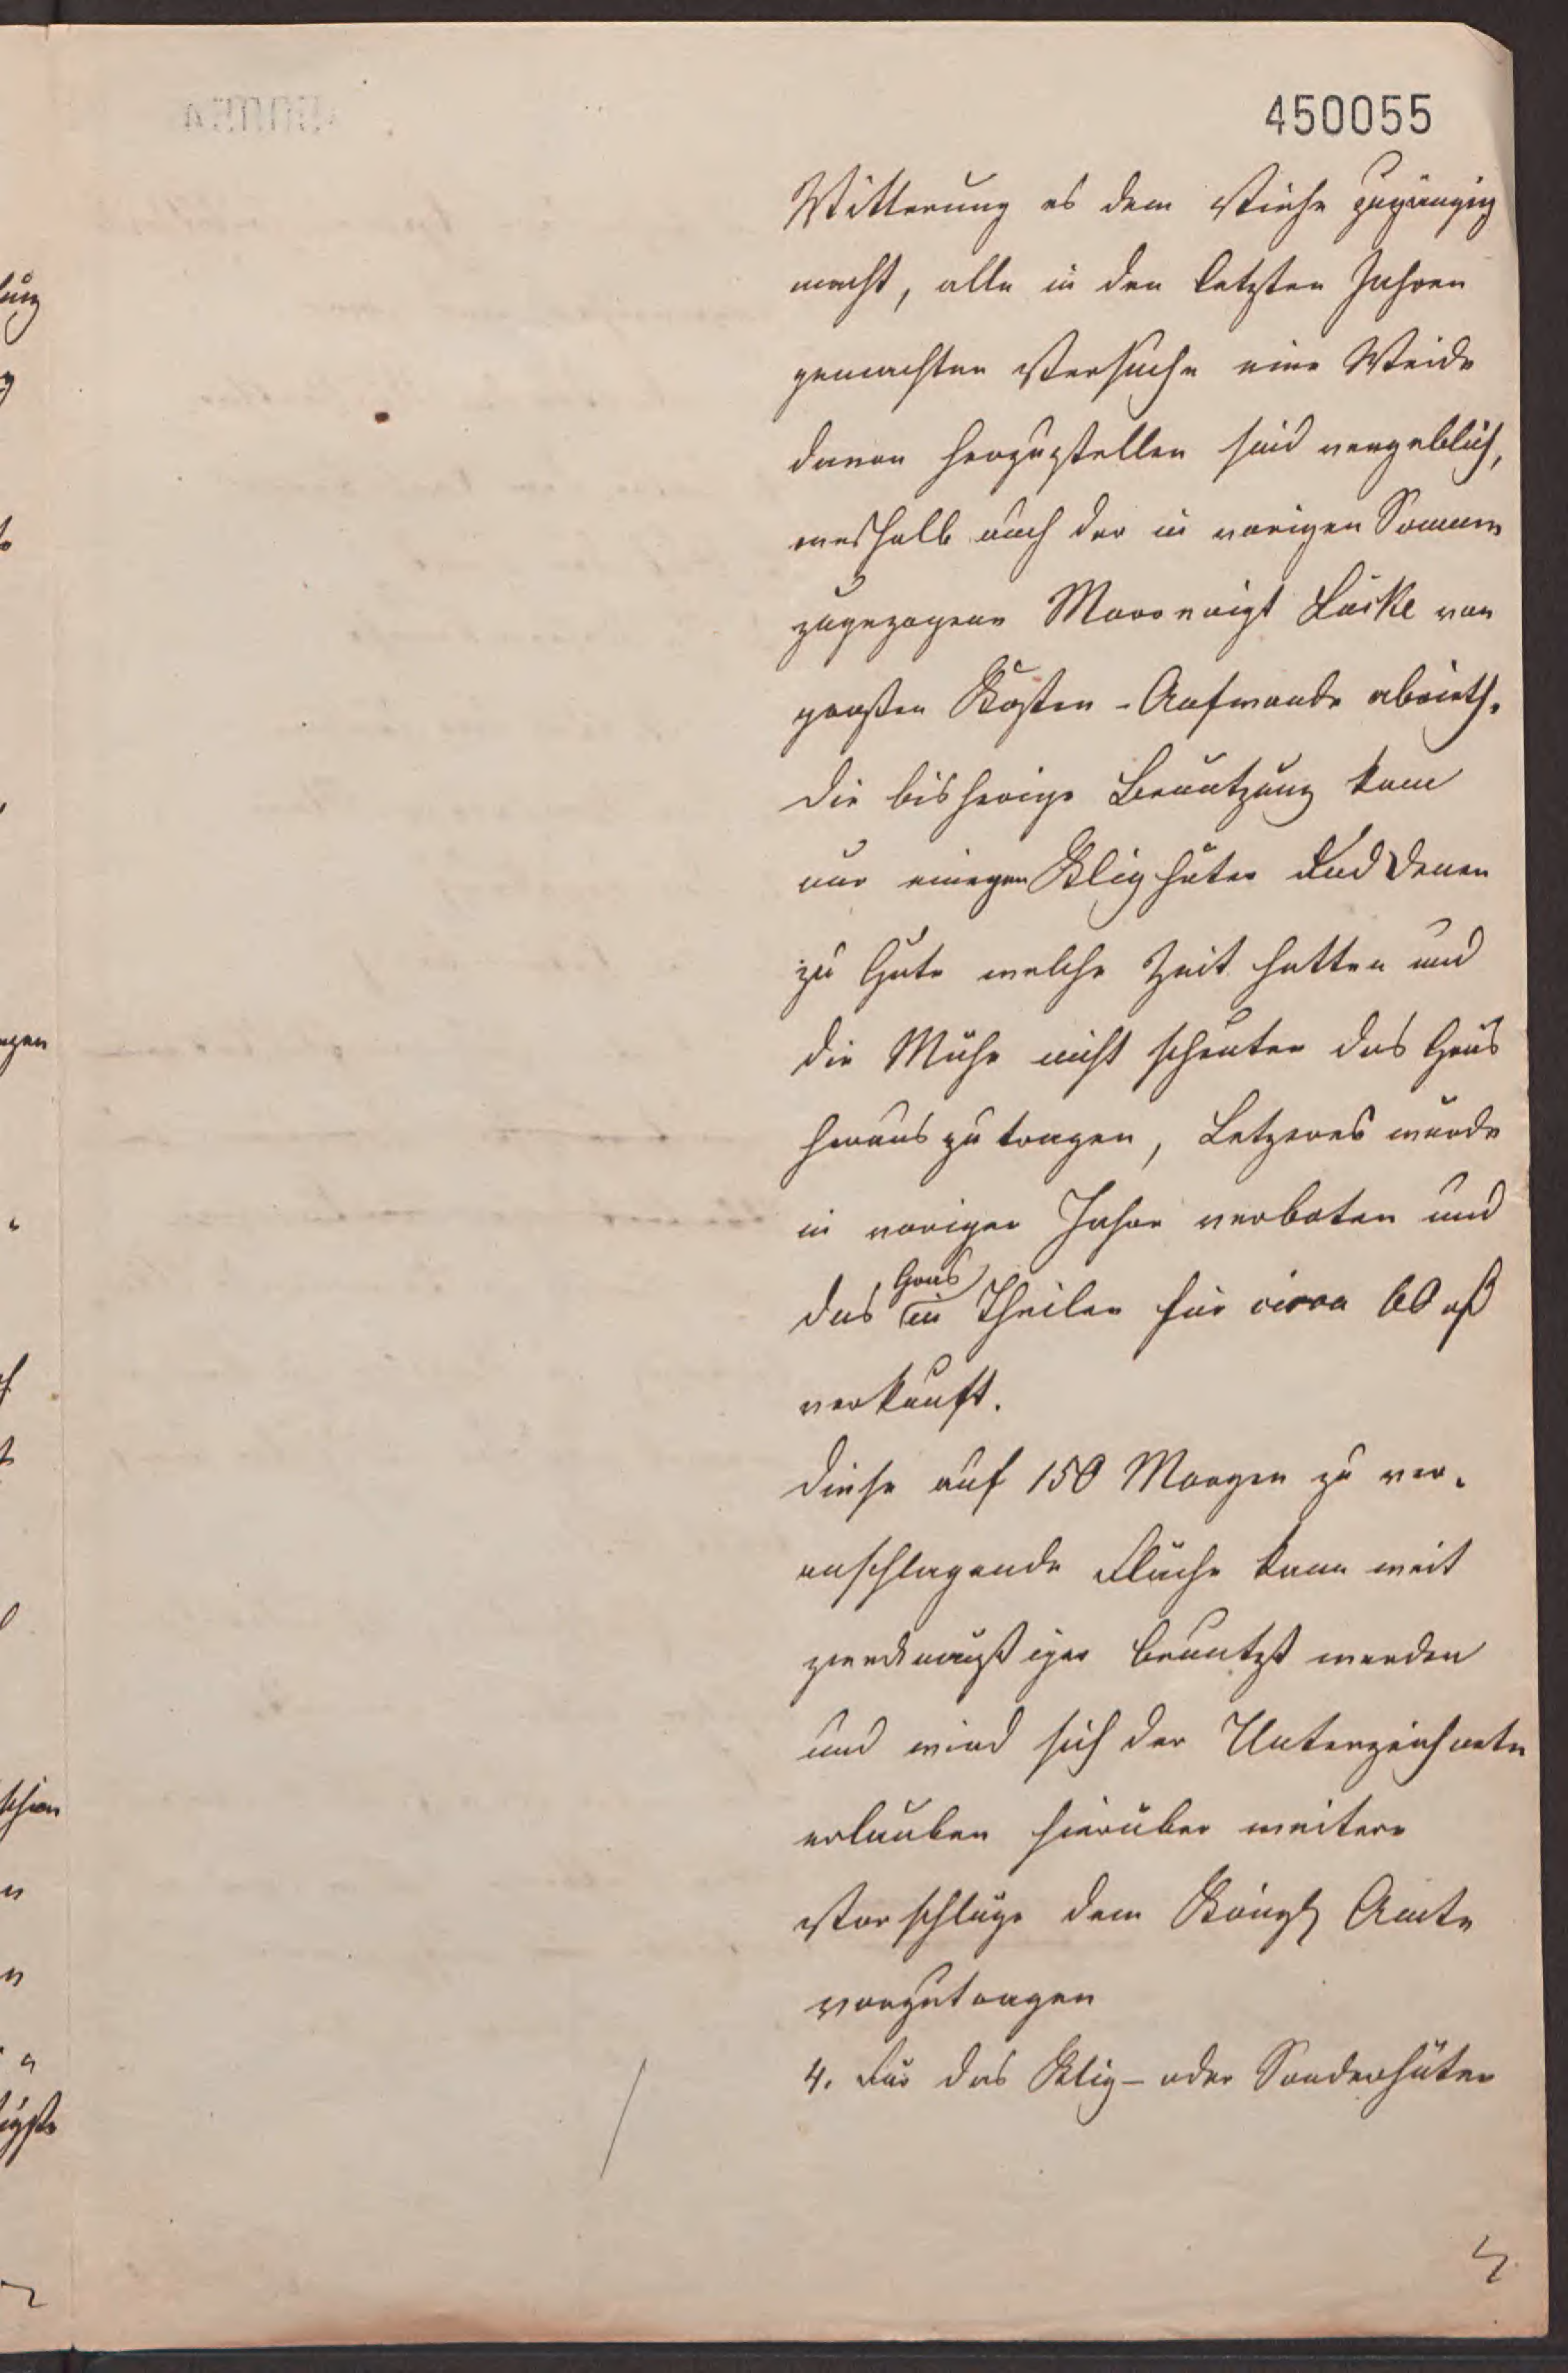 450055
Witterung es dem Viehe zugängig
macht, alle in den letzten Jahren
gemachten Versuche eine Weide
davon herzustellen sind vergeblich,
weshalb auch der in vorigen Sommer
zugezogene Moorvoigt Lücke von
großen Kosten-Aufwande abrieth.
Die bisherige Benutzung kam
nur einegen Klighüter und denen
zu Gute welche Zeit hatten und
die Mühe nicht scheuten das Gras
heraus zu tragen, Letzeres wurde
in vorigen Jahre verboten und
das Gras in Theilen für circa 60 rß
verkauft.
Diese auf 150 Morgen zu ver-
anschlagende Fläche kann weit
zweckmäßiger benutzt werden
und wird sich der Unterzeichnete
erlauben hierüber weitere
Vorschläge dem Königl Amte
vorzutragen
4. Für das Klig- oder Sonderhüten